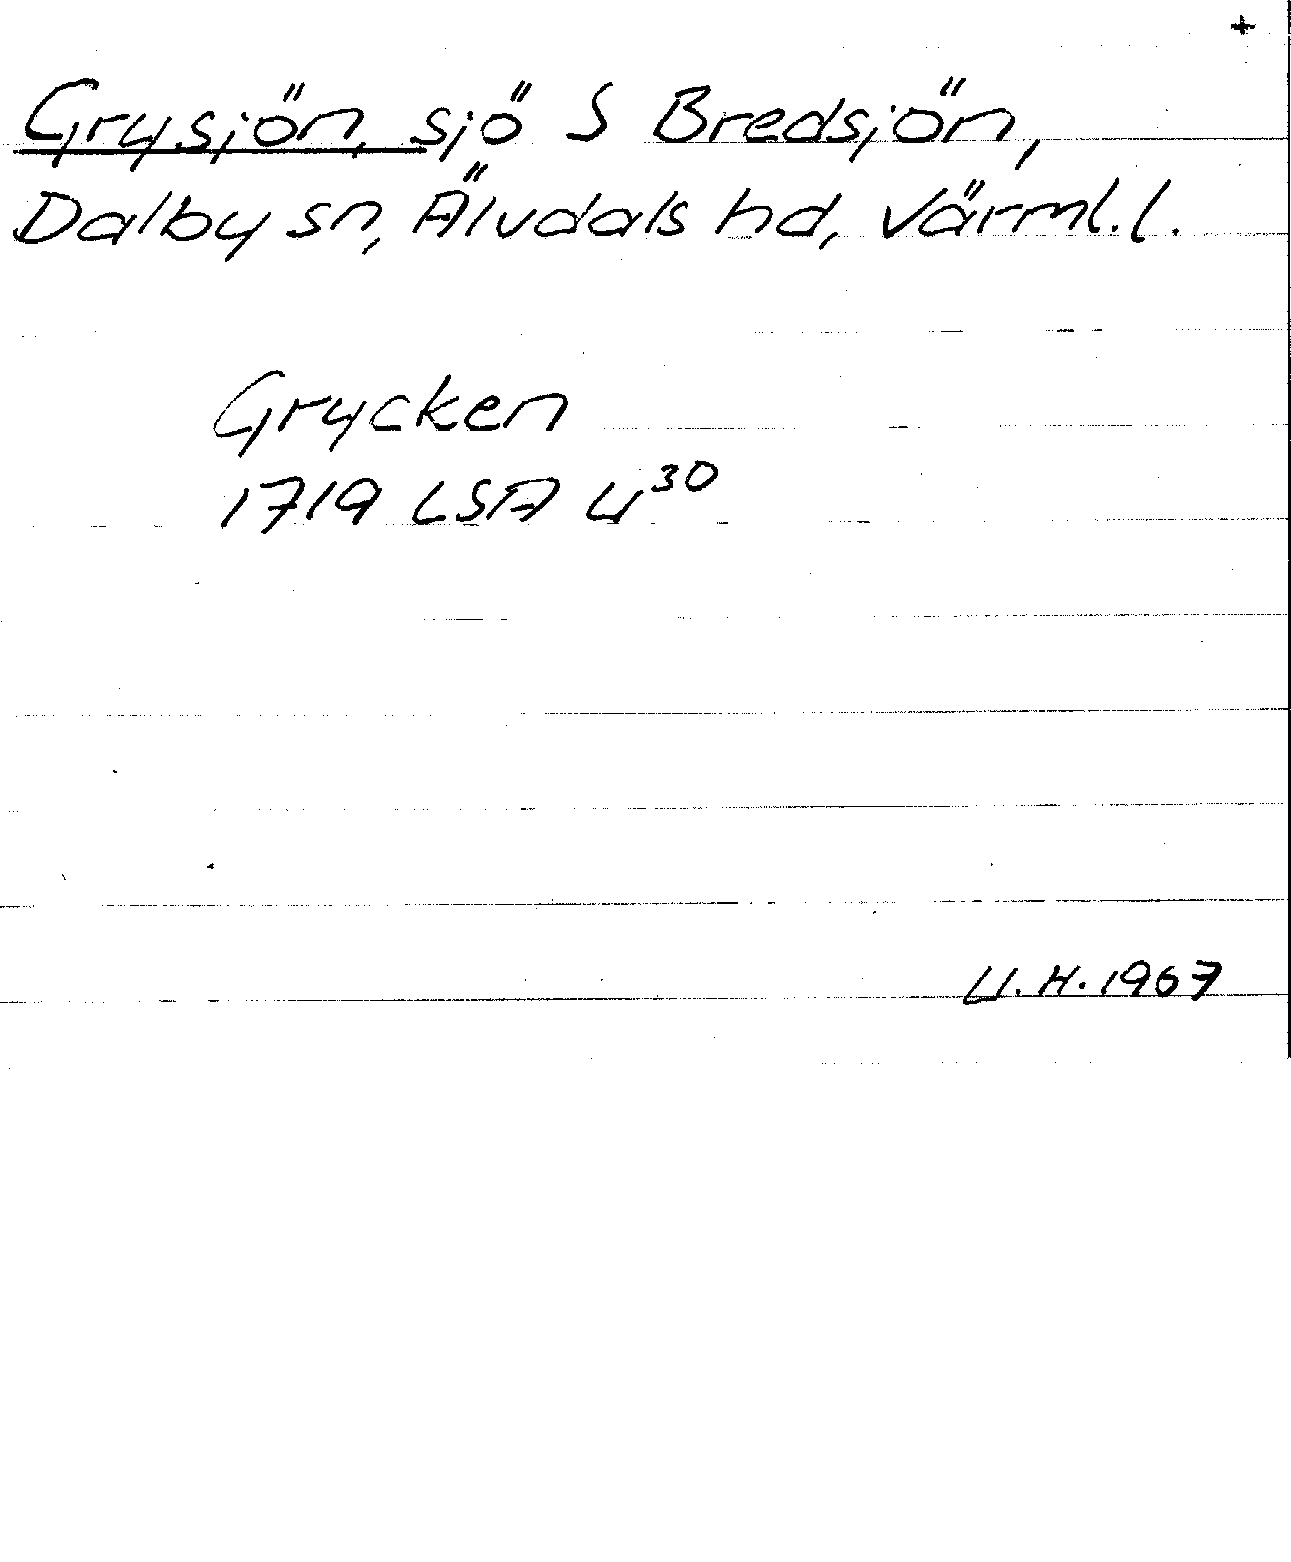 +
Grysjön, sjö S Bredsjön,
Dalby sn, Älvdals hd, Värml. l.
Grycken
1719 LSA U³⁰
U. H. 1967